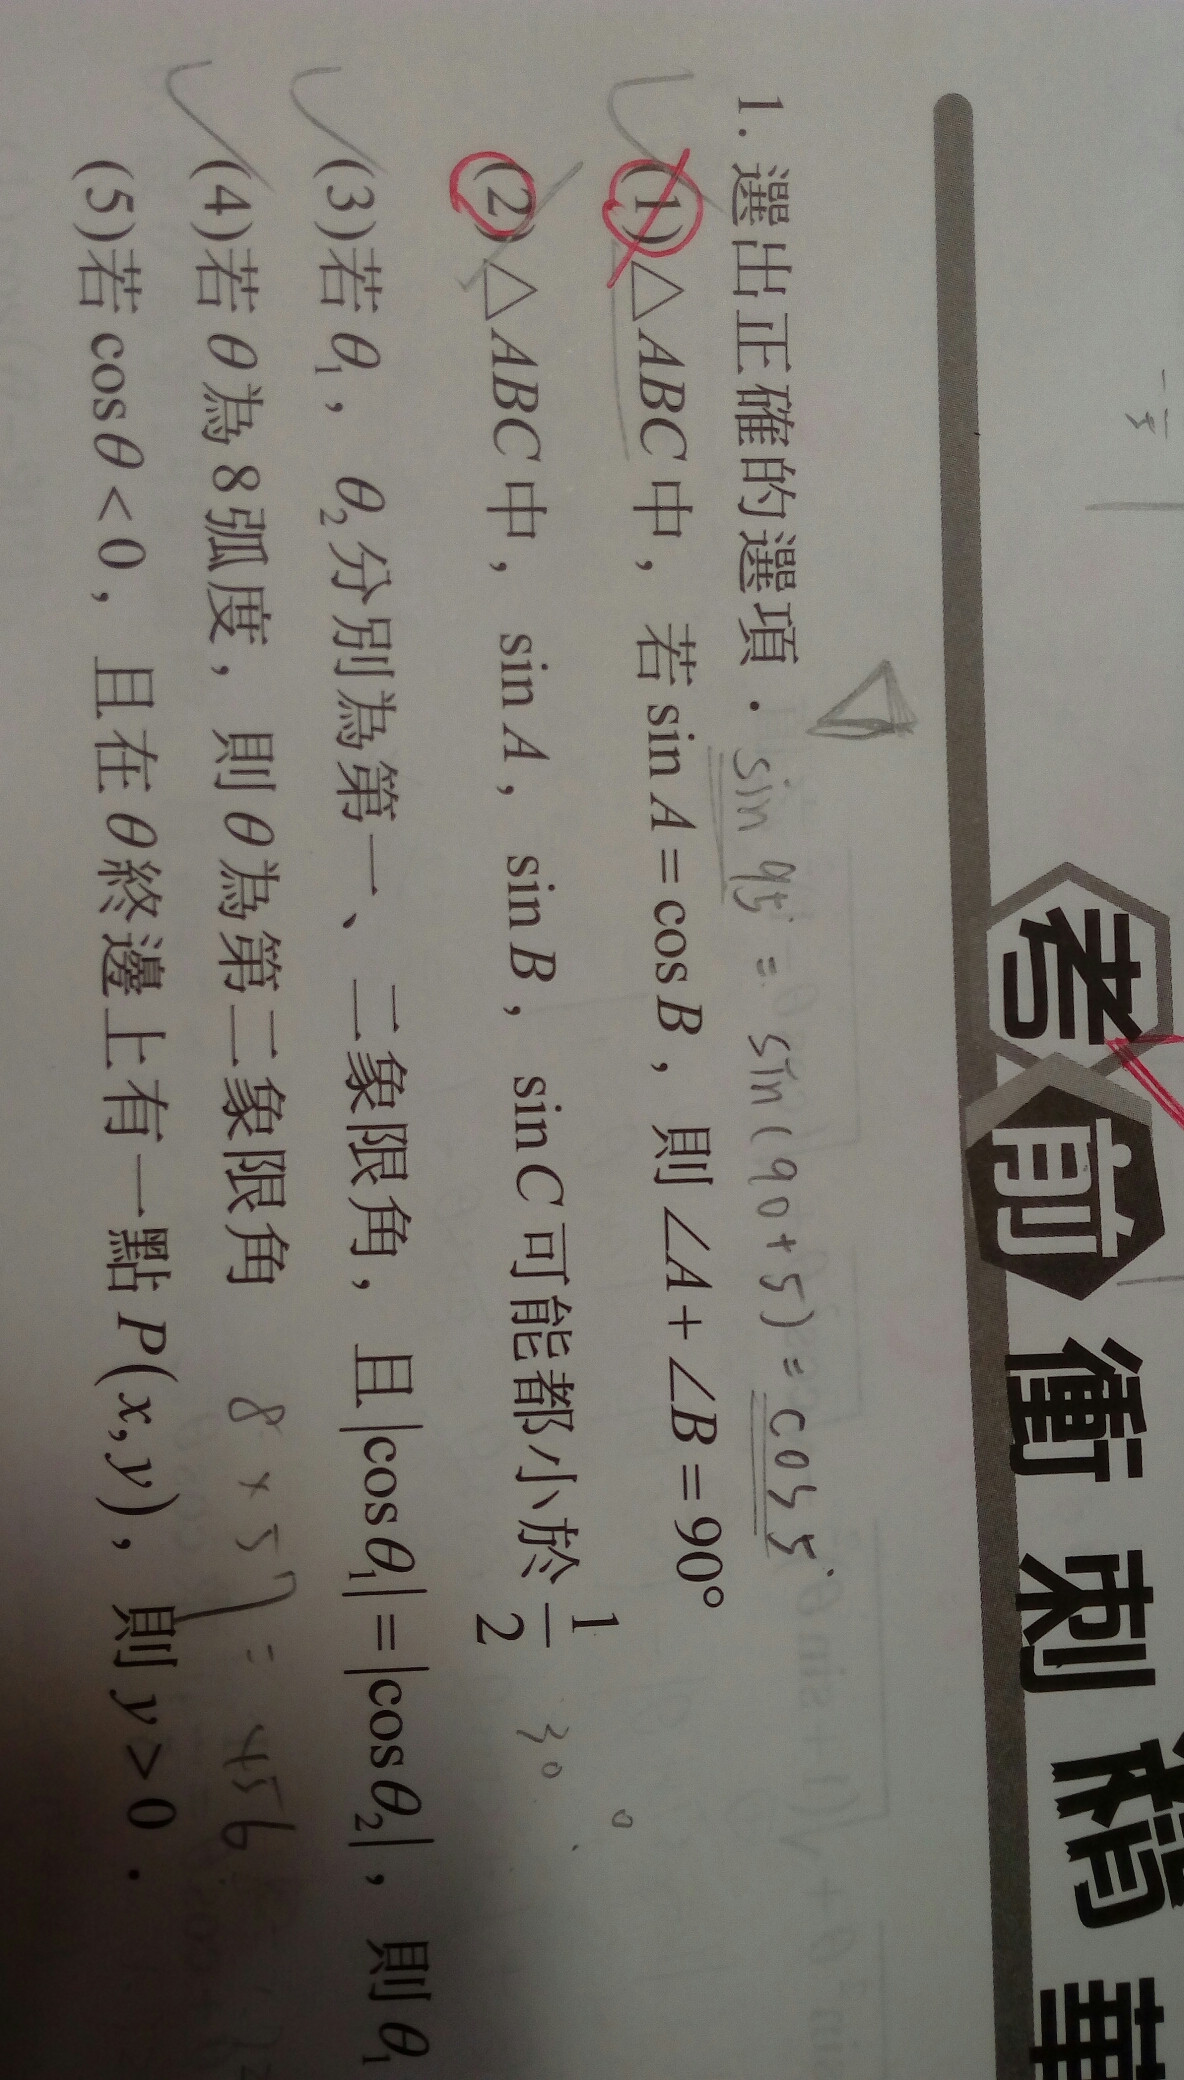 考前衝刺精華
1. 選出正確的選項．
sin 95° = sin(90+5) = cos 5°
(1)△ABC中，若sin A=cos B，則∠A+∠B=90°
(2)△ABC中，sin A，sin B，sin C可能都小於1/2
30
(3)若θ₁，θ₂分別為第一、二象限角，且|cosθ₁|=|cosθ₂|，則θ₁
(4)若θ為8弧度，則θ為第二象限角
8×57=456
(5)若cosθ<0，且在θ終邊上有一點P(x,y)，則y>0．